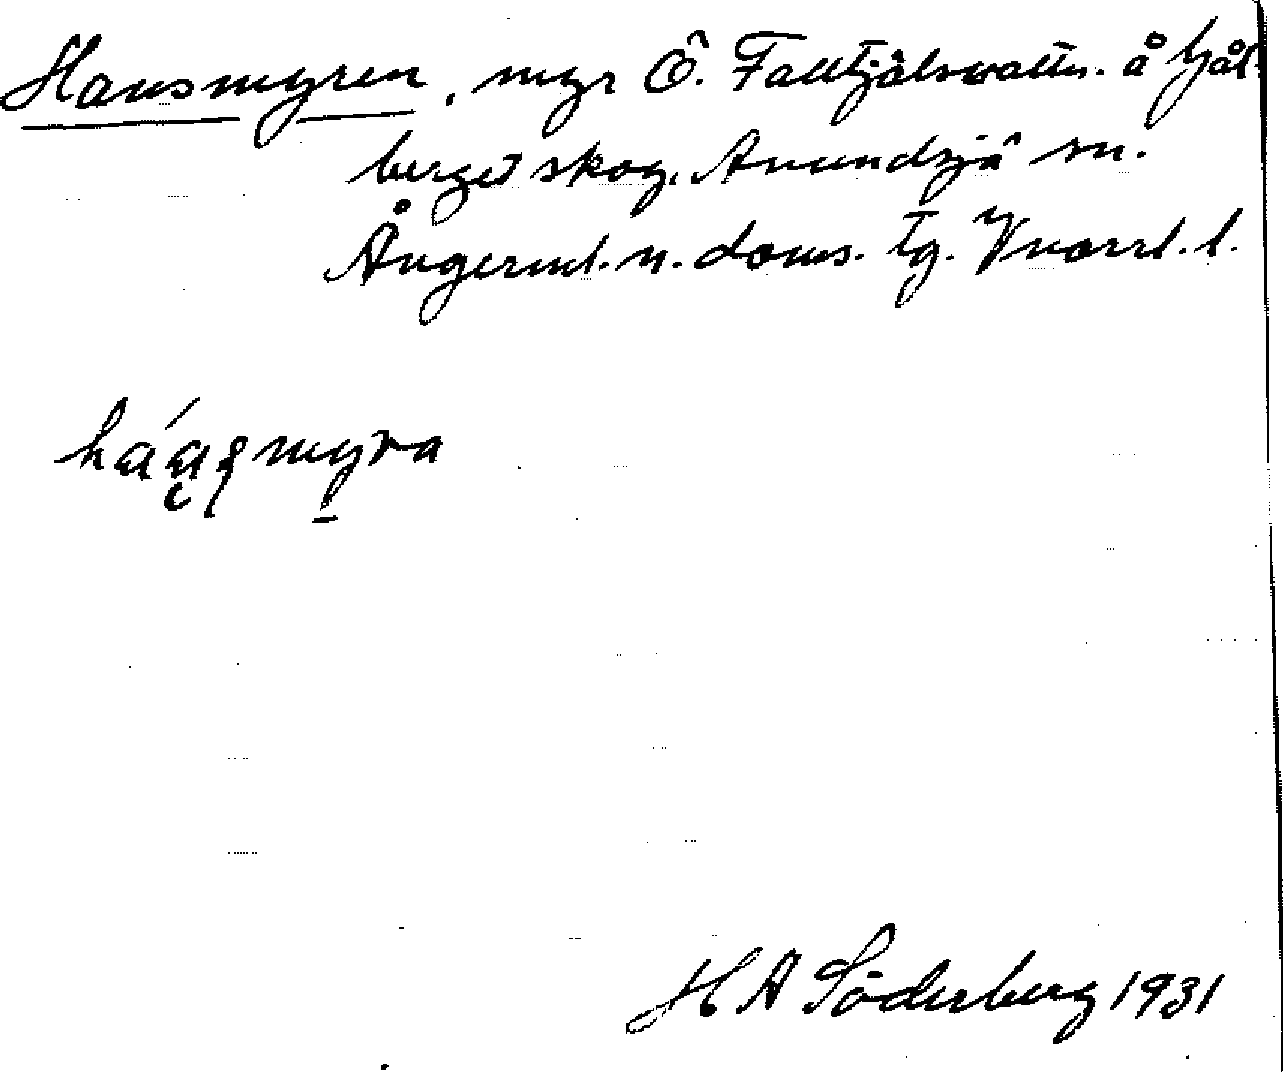 Hansmyren, myr Ö. Falltjälsvattn. å Gål-
berget skog, Anundsjö sn.
Ångerml. n. doms. tg. Vnorrl. l.
myra
H A Söderberg 1931